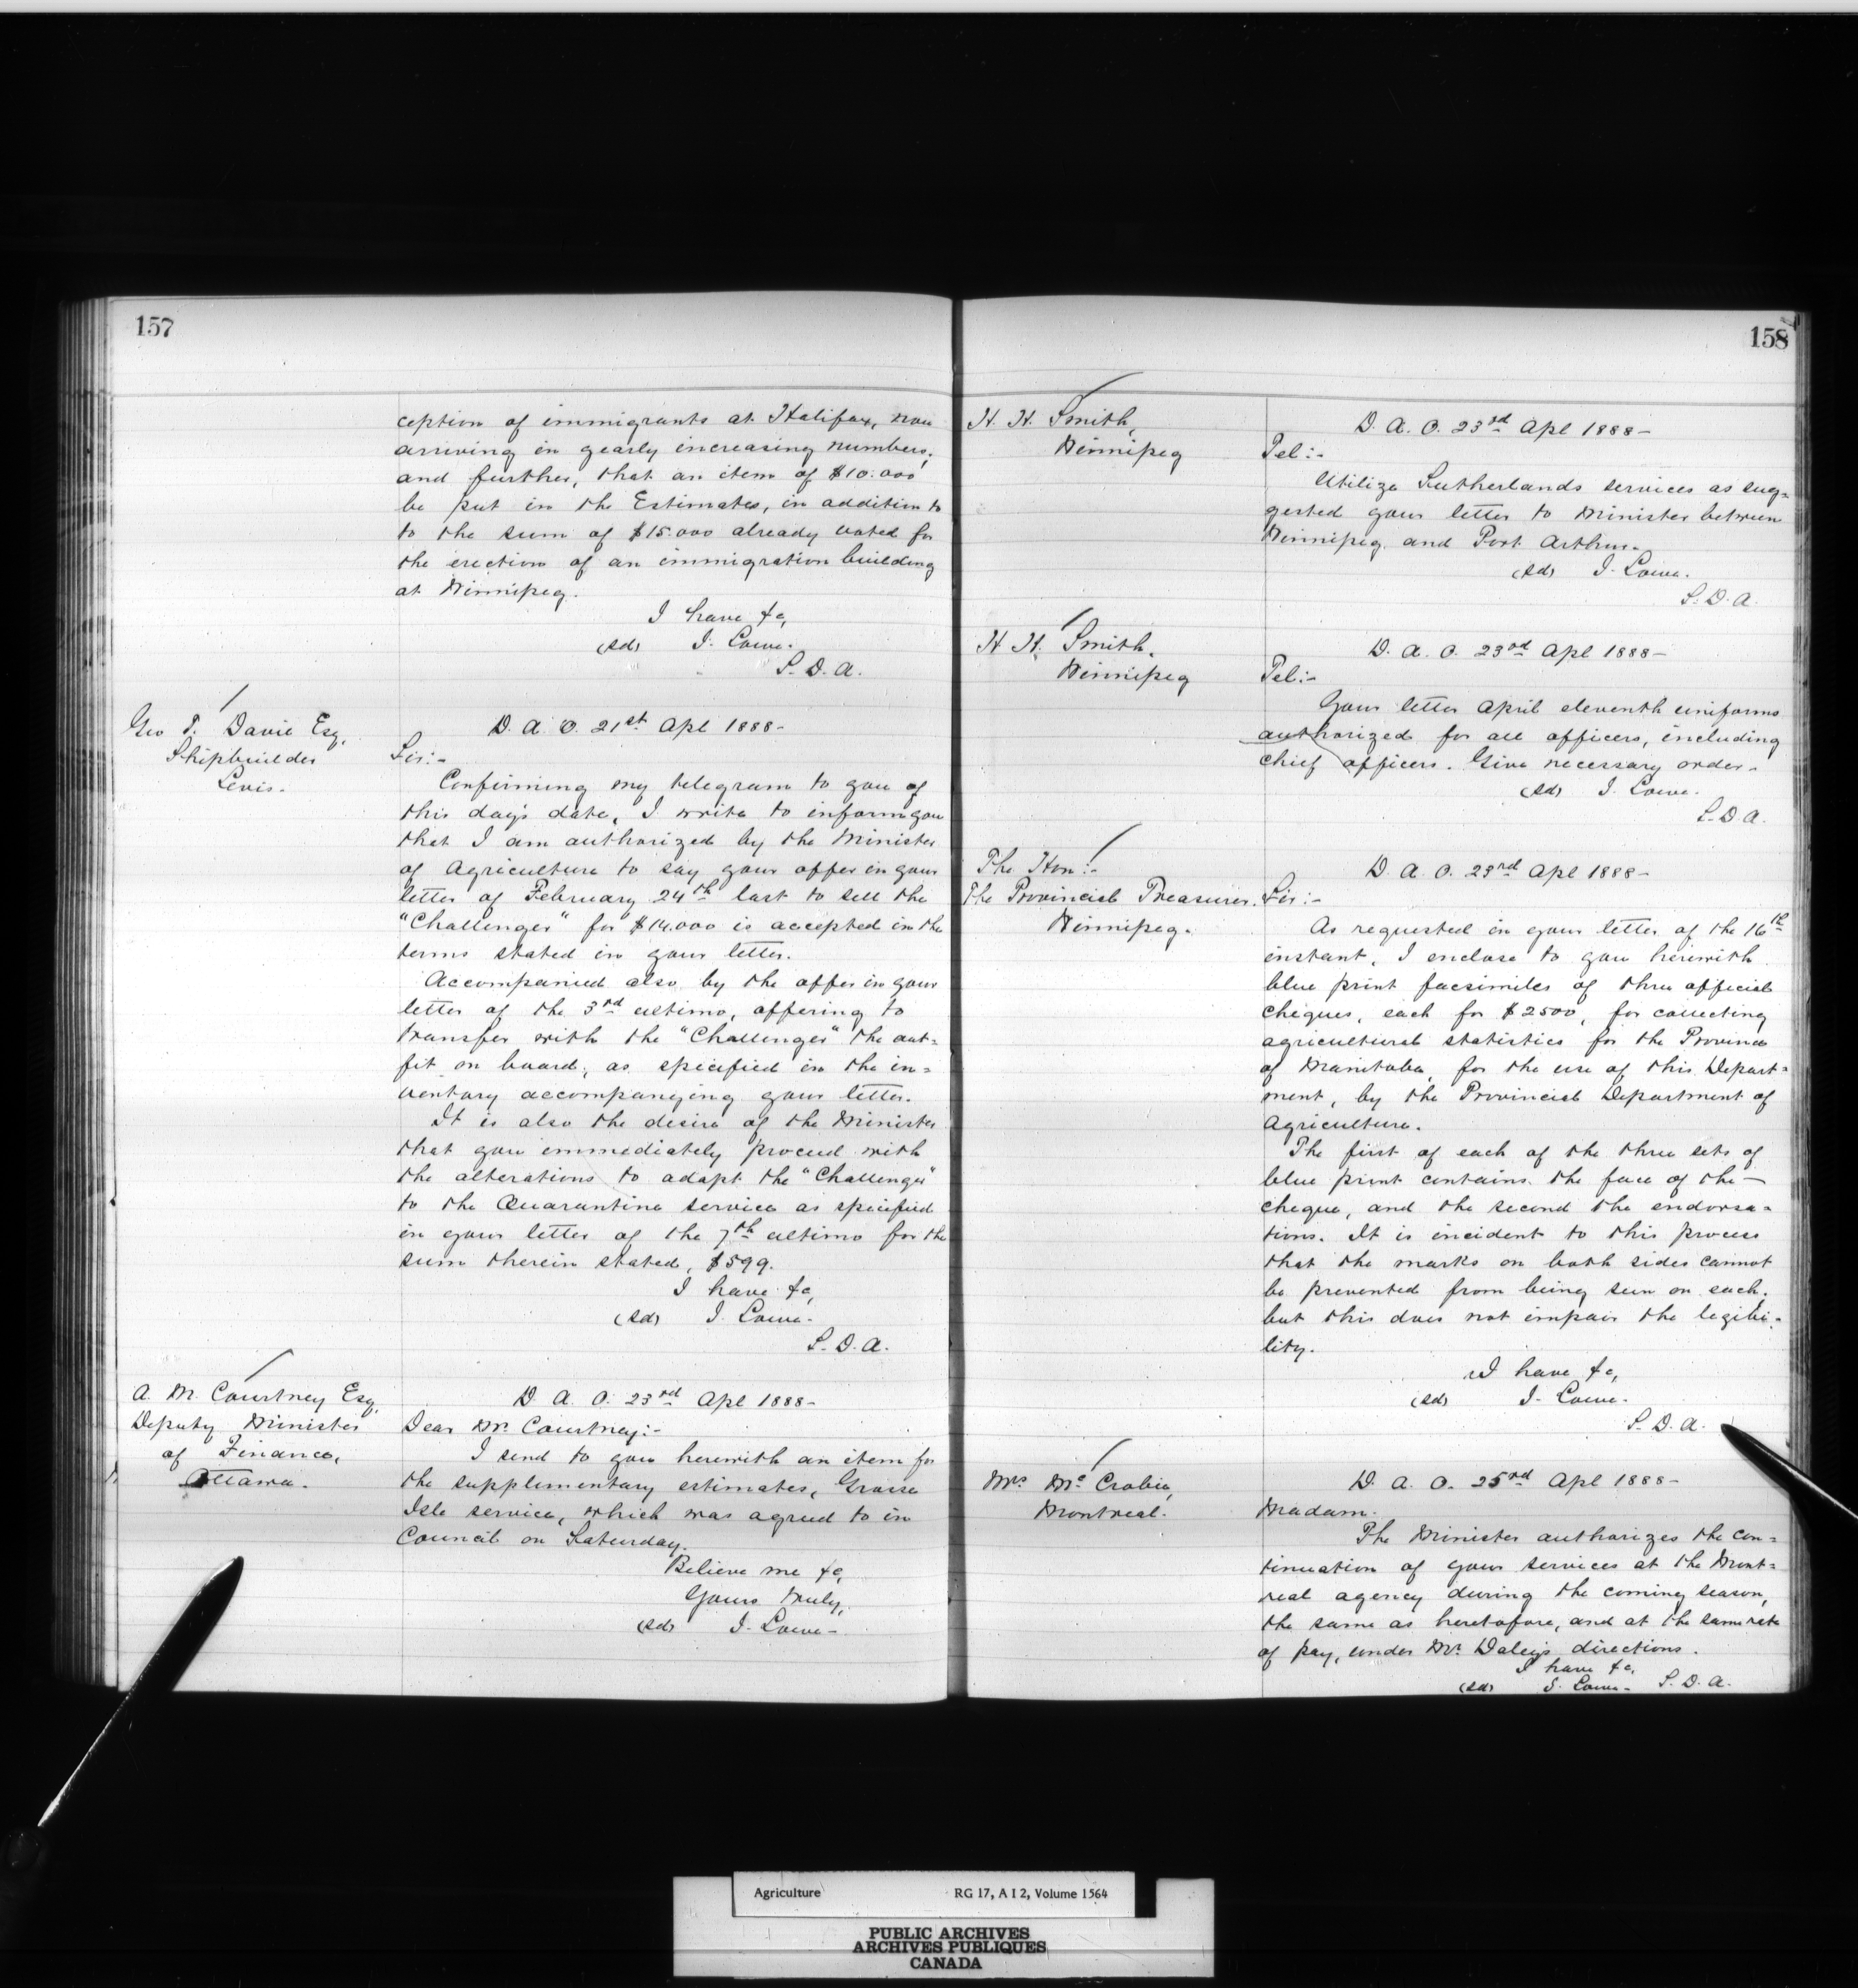 157
ception of immigrants at Halifax, now
arriving in yearly increasing numbers;
and further, that an item of $10.000
be put in the Estimates, in addition to
to the sum of $15.000 already voted for
the erection of an immigration building
at Winnipeg.
I have &c,
(sd) J. Lowe.
S. D. A.
Geo T. Davie Esq,
Shipbuilder
Levis.
D. A. O. 21st Apl 1888-
Sir:-
Confirming my telegram to you of
this day's date, I write to inform you
that I am authorized by the Minister
of Agriculture to say your offer in your
letter of February 24th last to sell the
"Challenger" for $14.000 is accepted in the
terms stated in your letter.
Accompanied also by the offer in your
letter of the 3rd ultimo, offering to
transfer with the "Challenger" the out=
fit on board, as specified in the in=
ventory accompanying your letter.
It is also the desire of the Minister
that you immediately proceed with
the alterations to adapt the "Challenger"
to the Quarantine service as specified
in your letter of the 7th ultimo for the
sum therein stated, $599.
I have &c,
(sd) J. Lowe.
S. D. A.
A. M. Courtney Esq,
Deputy Minister
of Finance,
Ottawa.
D. A. O. 23rd Apl 1888-
Dear Mr. Courtney:-
I send to you herewith an item for
the supplementary estimates, Grosse
Isle service, which was agreed to in
Council on Saturday.
Believe me &c,
Yours truly,
(sd) J. Lowe-
158
H. H. Smith,
Winnipeg
D. A. O. 23rd Apl 1888-
Tel:-
Utilize Sutherlands services as sug=
gested your letter to Minister between
Winnipeg and Port Arthur.
(sd) J. Lowe.
S. D. A.
H. H. Smith.
Winnipeg
D. A. O. 23rd Apl 1888-
Tel:-
Your letter April eleventh uniforms
authorized for all officers, including
chief officers. Give necessary order.
(sd) J. Lowe.
S. D. A.
The Hon:-
The Provincial Treasurer.
Winnipeg.
D. A. O. 23rd Apl 1888-
Sir:-
As requested in your letter of the 16th
instant, I enclose to you herewith
blue print facsimiles of three official
cheques, each for $2500, for collecting
agricultural statistics for the Province
of Manitoba, for the use of this Depart=
ment, by the Provincial Department of
Agriculture.
The first of each of the three sets of
blue print contains the face of the-
cheque, and the second the endorsa=
tions. It is incident to this process
that the marks on both sides cannot
be prevented from being seen on each.
but this does not impair the legibi=
lity.
I have &c,
(sd) J. Lowe.
S. D. A.
Mrs Mc Crobie,
Montreal.
D. A. O. 25rd Apl 1888-
Madam.
The Minister authorizes the con=
tinuation of your services at the Mont=
real agency during the coming season,
the same as heretofore, and at the same rate
of pay, under Mr. Daley's directions.
I have &c,
(sd) J. Lowe- S. D. A.
Agriculture RG 17, A I 2, Volume 1564
PUBLIC ARCHIVES
ARCHIVES PUBLIQUES
CANADA